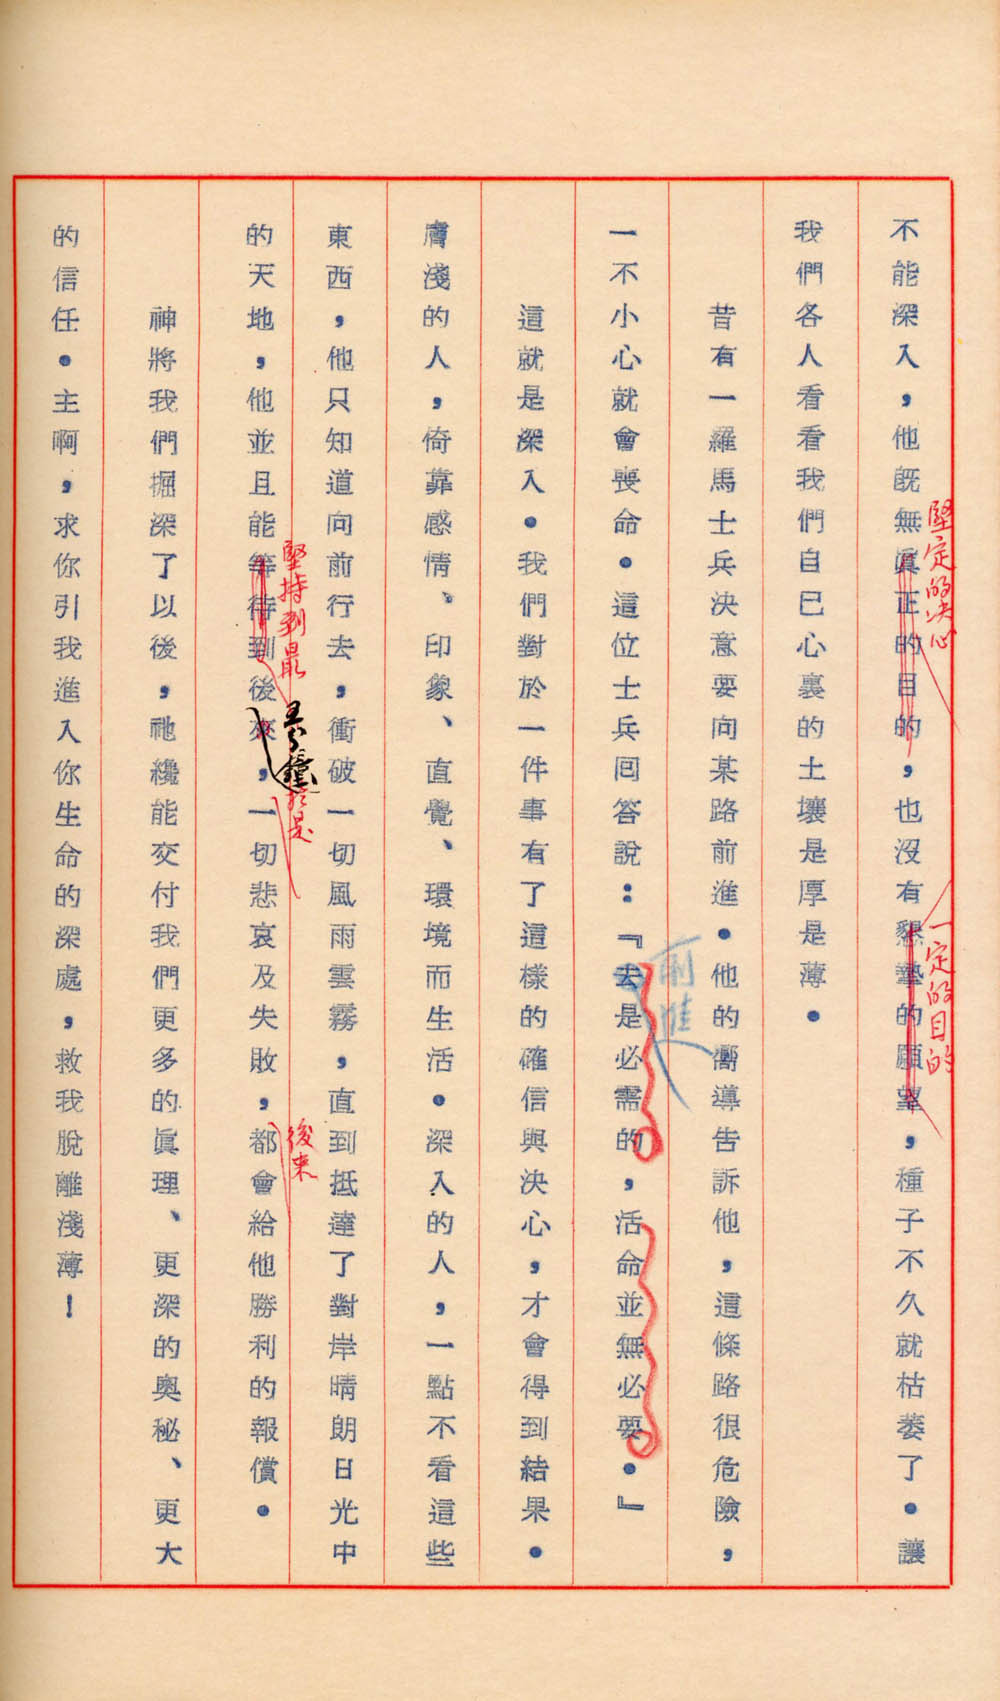 不能深入，他既無眞正的目的，也沒有懇摯的願望，種子不久就枯萎了。讓
堅定的决心
一定的目的
我們各人看看我們自已心裏的土壤是厚是薄。
昔有一羅馬士兵決意要向某路前進。他的嚮導告訴他，這條路很危險，
前進
一不小心就會喪命。這位士兵回答說：『去是必需的，活命並無必要。』
這就是深入。我們對於一件事有了這樣的確信與決心，才會得到結果。
膚淺的人，倚靠感情、印象、直覺、環境而生活。深入的人，一點不看這些
東西，他只知道向前行去，衝破一切風雨雲霧，直到抵達了對岸晴朗日光中
堅持到最
五分鐘
於是
後來
的天地，他並且能等待到後來，一切悲哀及失敗，都會給他勝利的報償。
神將我們掘深了以後，祂纔能交付我們更多的眞理、更深的奧秘、更大
的信任。主啊，求你引我進入你生命的深處，救我脫離淺薄！